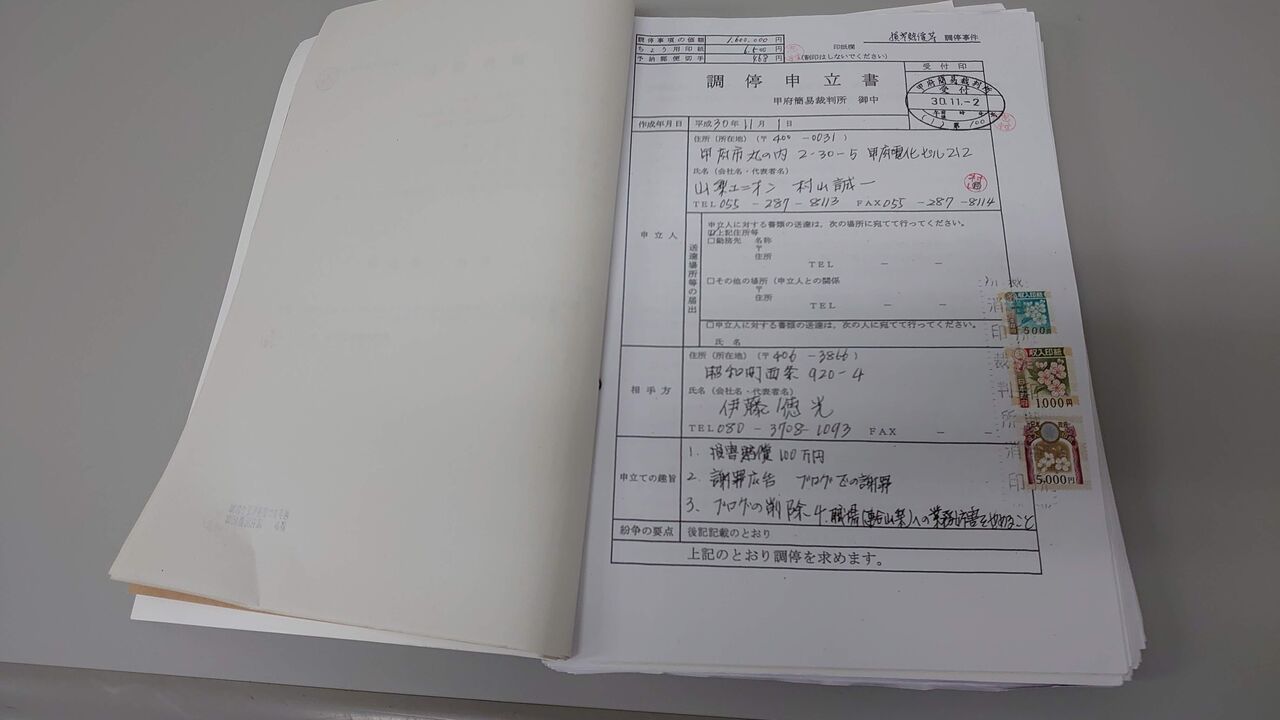 損害賠償等 調停事件
調停事項の価額 1,600,000 円
ちょう用印紙 6,500 円
予納郵便切手 468 円
印紙欄
(割印はしないでください)
調停申立書
甲府簡易裁判所 御中
受付印
甲府簡易裁判所
受付
30.11.-2
作成年月日 平成30年11月1日
申立人
住所(所在地)(〒400-0031)
甲府市丸の内 2-30-5 甲府電化ビル212
氏名(会社名・代表者名)
山梨ユニオン 村山誠一
TEL 055-287-8113 FAX 055-287-8114
送達場所等の届出
申立人に対する書類の送達は、次の場所に宛てて行ってください。
☑上記住所等
□勤務先 名称
〒
住所
TEL - -
□その他の場所(申立人との関係
〒
住所
TEL - -
□申立人に対する書類の送達は、次の人に宛てて行ってください。
氏名
相手方
住所(所在地)(〒406-3866)
昭和町西条 920-4
氏名(会社名・代表者名)
伊藤徳光
TEL 080-3708-1093 FAX - -
申立ての趣旨
1. 損害賠償100万円
2. 謝罪広告 ブログでの謝罪
3. ブログの削除 4. 職場への業務妨害をやめること
紛争の要点 後記記載のとおり
上記のとおり調停を求めます。
収入印紙
500円
収入印紙
1000円
5,000円
消
印
裁
判
所
消
印